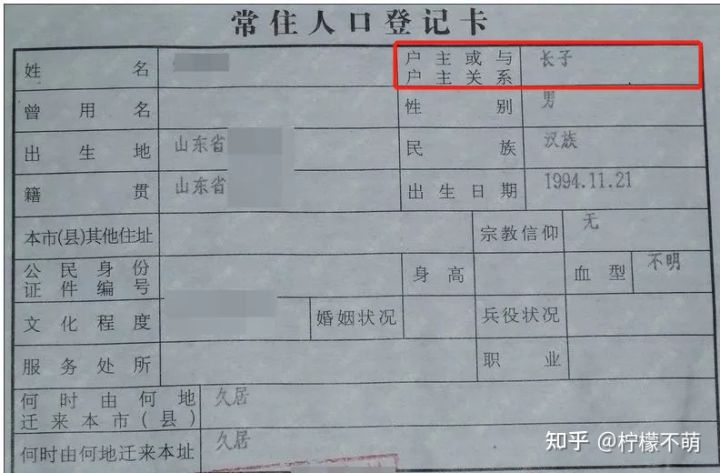 常住人口登记卡
姓名
户主或与户主关系 长子
曾用名 性别 男
出生地 山东省 民族 汉族
籍贯 山东省 出生日期 1994.11.21
本市(县)其他住址 宗教信仰 无
公民身份证件编号 身高 血型 不明
文化程度 婚姻状况 兵役状况
服务处所 职业
何时由何地迁来本市(县) 久居
何时由何地迁来本址 久居
知乎 @柠檬不萌